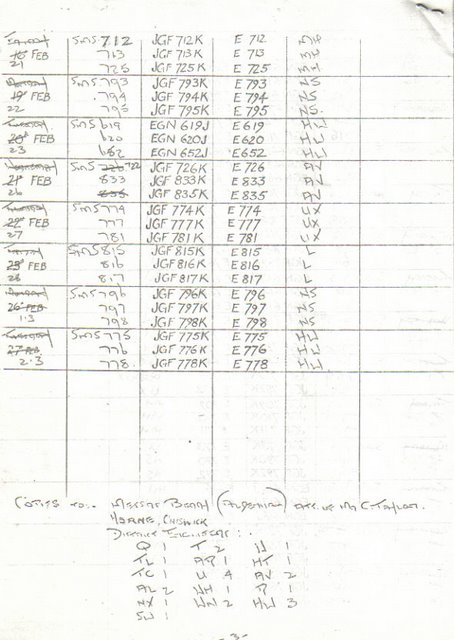 SMS 712 JGF 712K E 712 MH
FEB 713 JGF 713K E 713 MH
21 725 JGF 725K E 725 MH
SMS 793 JGF 793K E 793 NS
FEB 794 JGF 794K E 794 NS
22 795 JGF 795K E 795 NS
SMS 619 EGN 619J E 619 HW
FEB 620 EGN 620J E 620 HW
23 652 EGN 652J E 652 HW
726 JGF 726K E 726 AV
FEB 833 JGF 833K E 833 AV
26 835 JGF 835K E 835 AV
SMS 774 JGF 774K E 774 UX
FEB 777 JGF 777K E 777 UX
27 781 JGF 781K E 781 UX
SMS 815 JGF 815K E 815 L
FEB 816 JGF 816K E 816 L
28 817 JGF 817K E 817 L
SMS 796 JGF 796K E 796 NS
26 FEB 797 JGF 797K E 797 NS
1.3 798 JGF 798K E 798 NS
SMS 775 JGF 775K E 775 HW
27 FEB 776 JGF 776K E 776 HW
2.3 778 JGF 778K E 778 HW
COPIES TO.. MESSRS BERRY MR C. TAYLOR.
HORNE, CHISWICK
DISTRICT ENGINEERS:
Q 1 T 2 W 1
TL 1 AP 1 HT 1
TC 1 U 4 AV 2
AL 2 WH 1 R 1
NX 1 WN 2 HW 3
SW 1
-3-